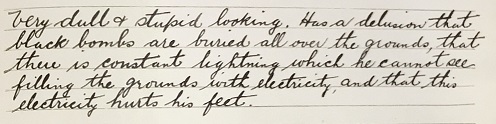 Very dull & stupid looking. Has a delusion that
black bombs are buried all over the grounds, that
there is constant lightning which he cannot see
filling the grounds with electricity, and that this
electricity hurts his feet.